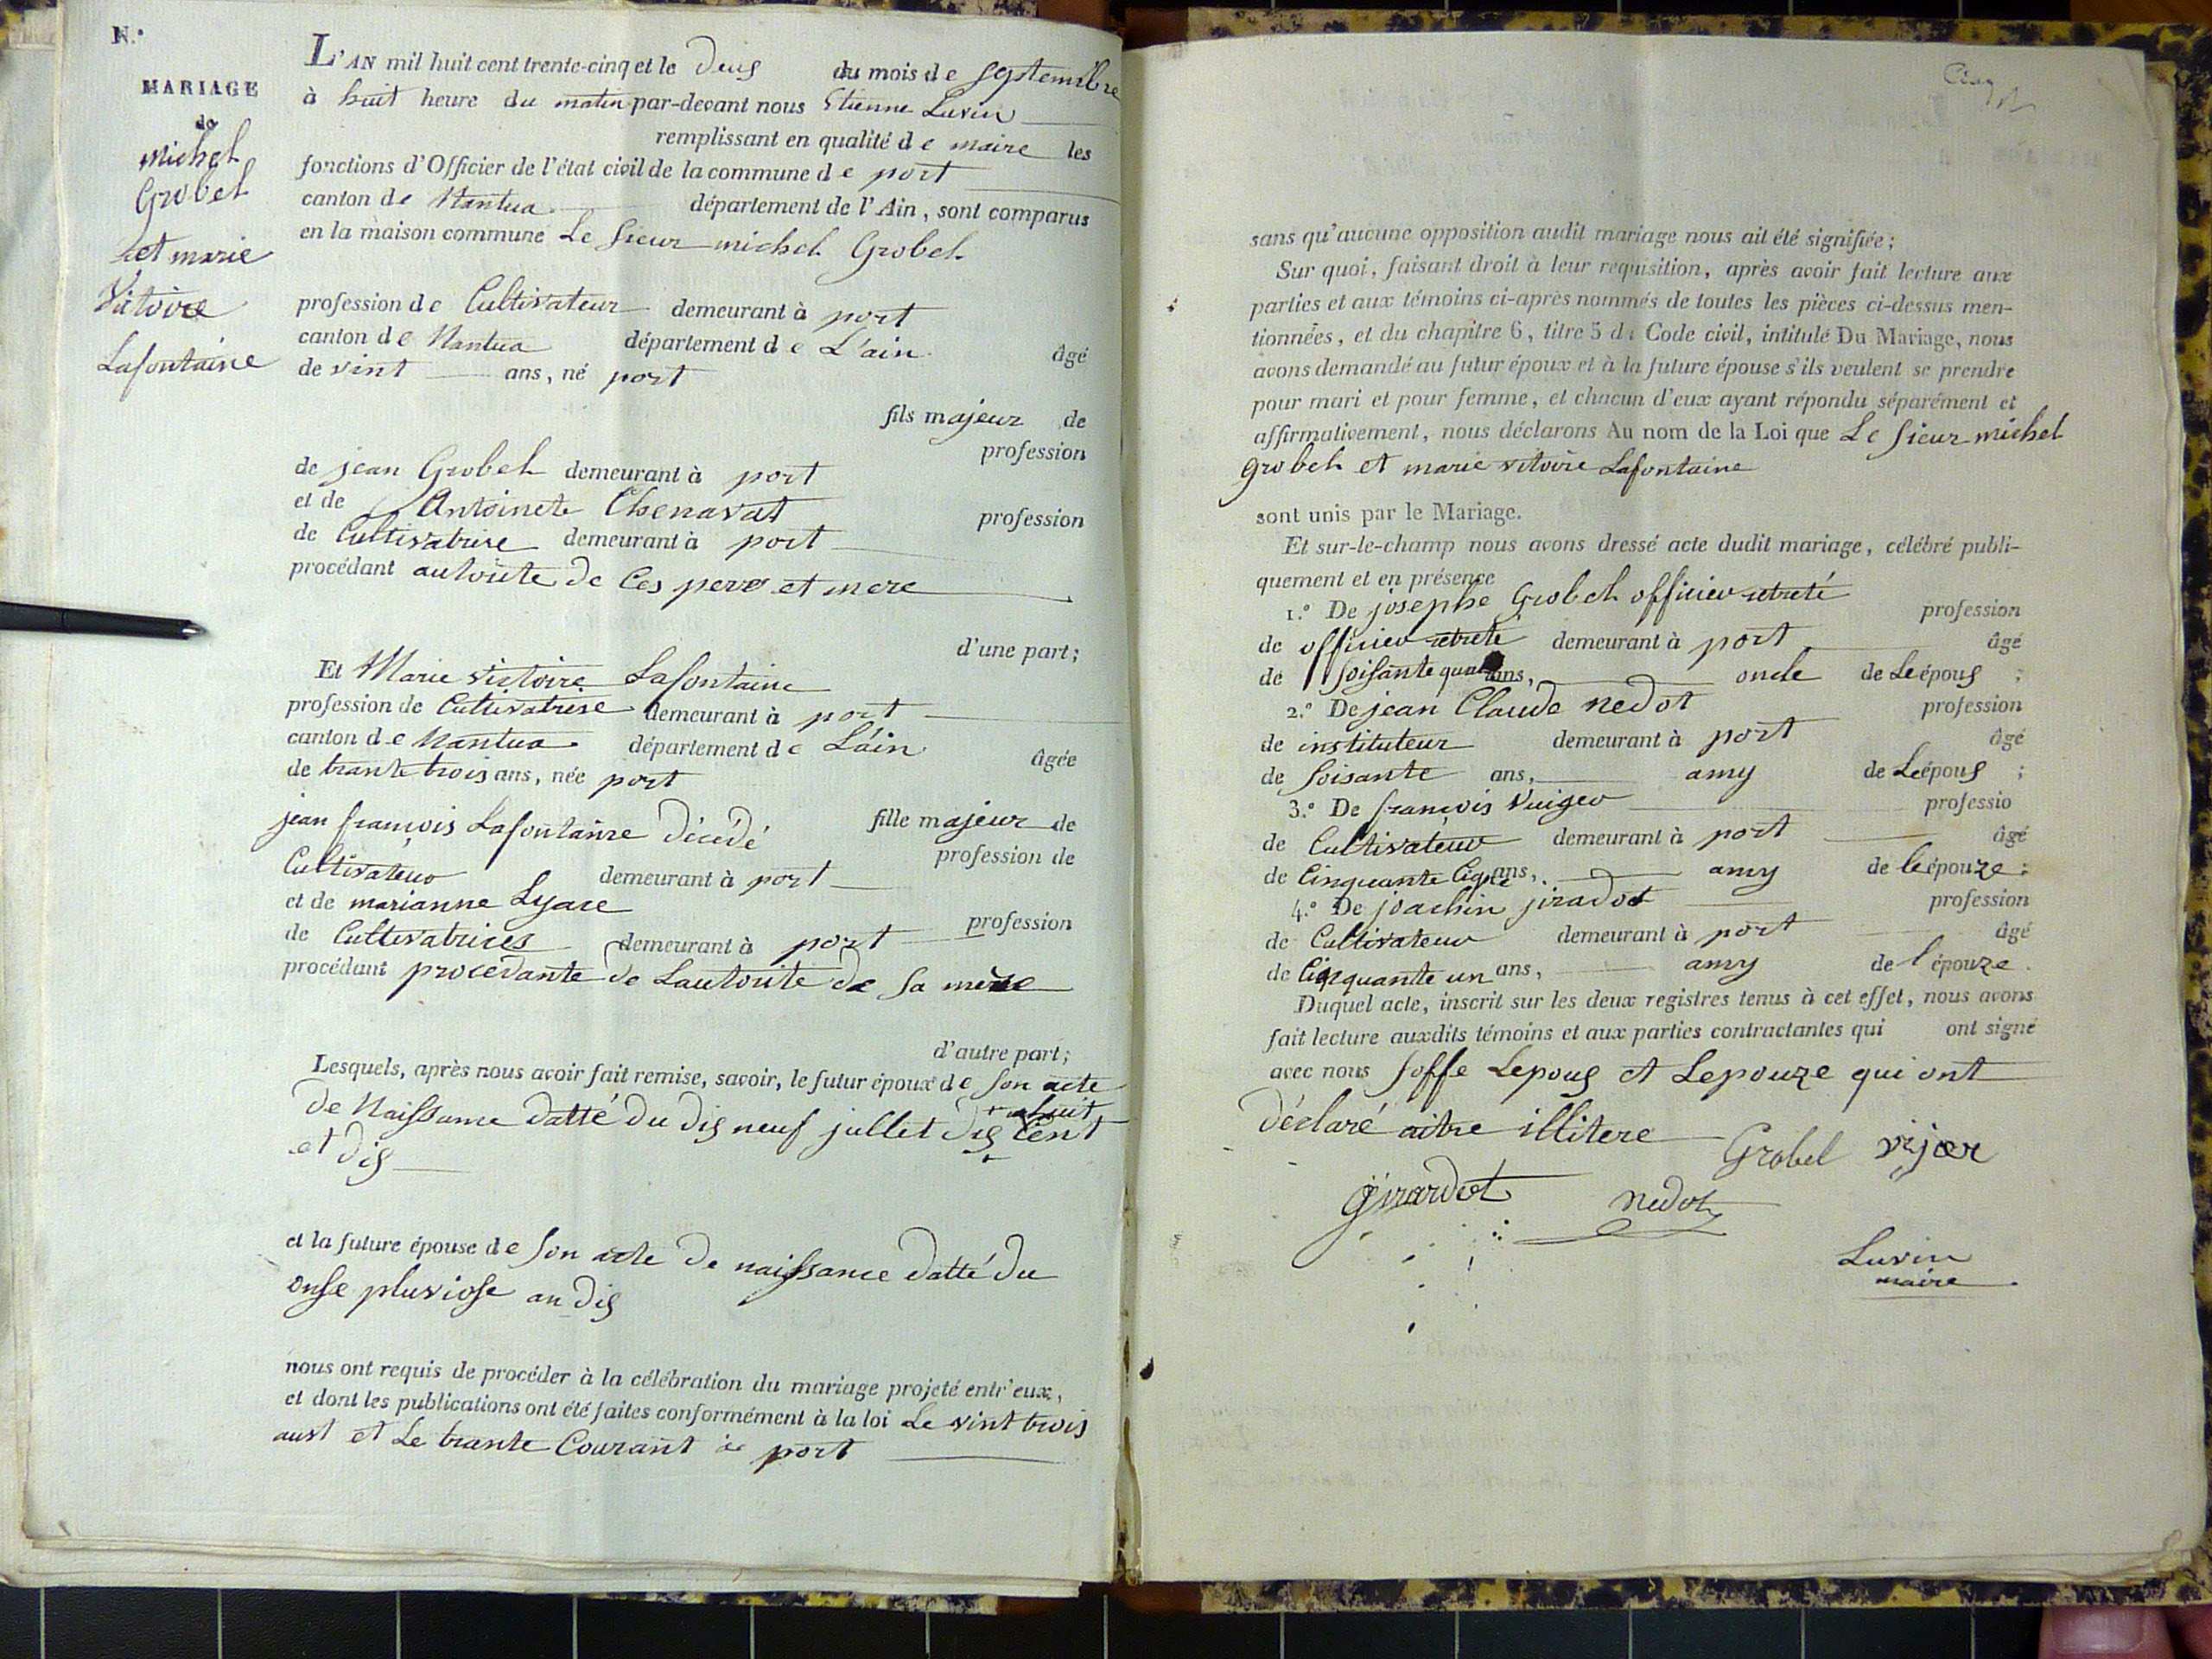 N.°
MARIAGE
de
Michel
Grobel
et marie
Victoire
Lafontaine
L'AN mil huit cent trente-cinq et le deus du mois de septembre
à huit heure du matin par-devant nous Etienne Luvin
remplissant en qualité de maire les
fonctions d'Officier de l'état civil de la commune de port
canton de Nantua département de l'Ain, sont comparus
en la maison commune Le sieur michel Grobel
profession de Cultivateur demeurant à port
canton de Nantua département de L'ain âgé
de vint ans, né port
fils majeur de
profession
de jean Grobel demeurant à port
et de Antoinete Chenavat profession
de Cultivatrise demeurant à port
procédant autorite de Ces pere et mere
d'une part;
Et Marie victoire Lafontaine
profession de Cultivatrise demeurant à port
canton de Nantua département de L'ain âgée
de trante trois ans, née port
fille majeur de
jean françois Lafontaine décédé profession de
Cultivateur demeurant à port
et de marianne Lyare profession
de Cultivatrices demeurant à port
procédant procedante de Lautorite de sa mère
d'autre part;
Lesquels, après nous avoir fait remise, savoir, le futur époux de son acte
de Naissance datté du dis neuf jullet dis huit Cent
et dis
et la future épouse de son acte de naissance datté du
onse pluviose an dis
nous ont requis de procéder à la célébration du mariage projeté entr'eux,
et dont les publications ont été faites conformément à la loi Le vint trois
aust et Le trante Courant à port
Cinq
sans qu'aucune opposition audit mariage nous ait été signifiée;
Sur quoi, faisant droit à leur requisition, après avoir fait lecture aux
parties et aux témoins ci-après nommés de toutes les pièces ci-dessus men-
tionnées, et du chapitre 6, titre 5 du Code civil, intitulé Du Mariage, nous
avons demandé au futur époux et à la future épouse s'ils veulent se prendre
pour mari et pour femme, et chacun d'eux ayant répondu séparément et
affirmativement, nous déclarons Au nom de la Loi que Le sieur michel
grobel et marie vitoire Lafontaine
sont unis par le Mariage.
Et sur-le-champ nous avons dressé acte dudit mariage, célébré publi-
quement et en présence
1.° De josephe Grobel officier retreté profession
de officier retreté demeurant à port âgé
de soisante quatre ans, oncle de Leépous ;
2.° De jean Claude nedot profession
de instituteur demeurant à port âgé
de soisante ans, amy de Leépous ;
3.° De françois Vuiger professio
de Cultivateur demeurant à port âgé
de Cinquante Cinq ans, amy de leépouze ;
4.° De joachin jiradot profession
de Cultivateur demeurant à port âgé
de Cinquante un ans, amy de l'épouze
Duquel acte, inscrit sur les deux registres tenus à cet effet, nous avons
fait lecture auxdits témoins et aux parties contractantes qui ont signé
avec nous soffe Lepous et Lepouze qui ont
déclaré aitre illitere Grobel vijer
girardot nedot
Luvin
maire